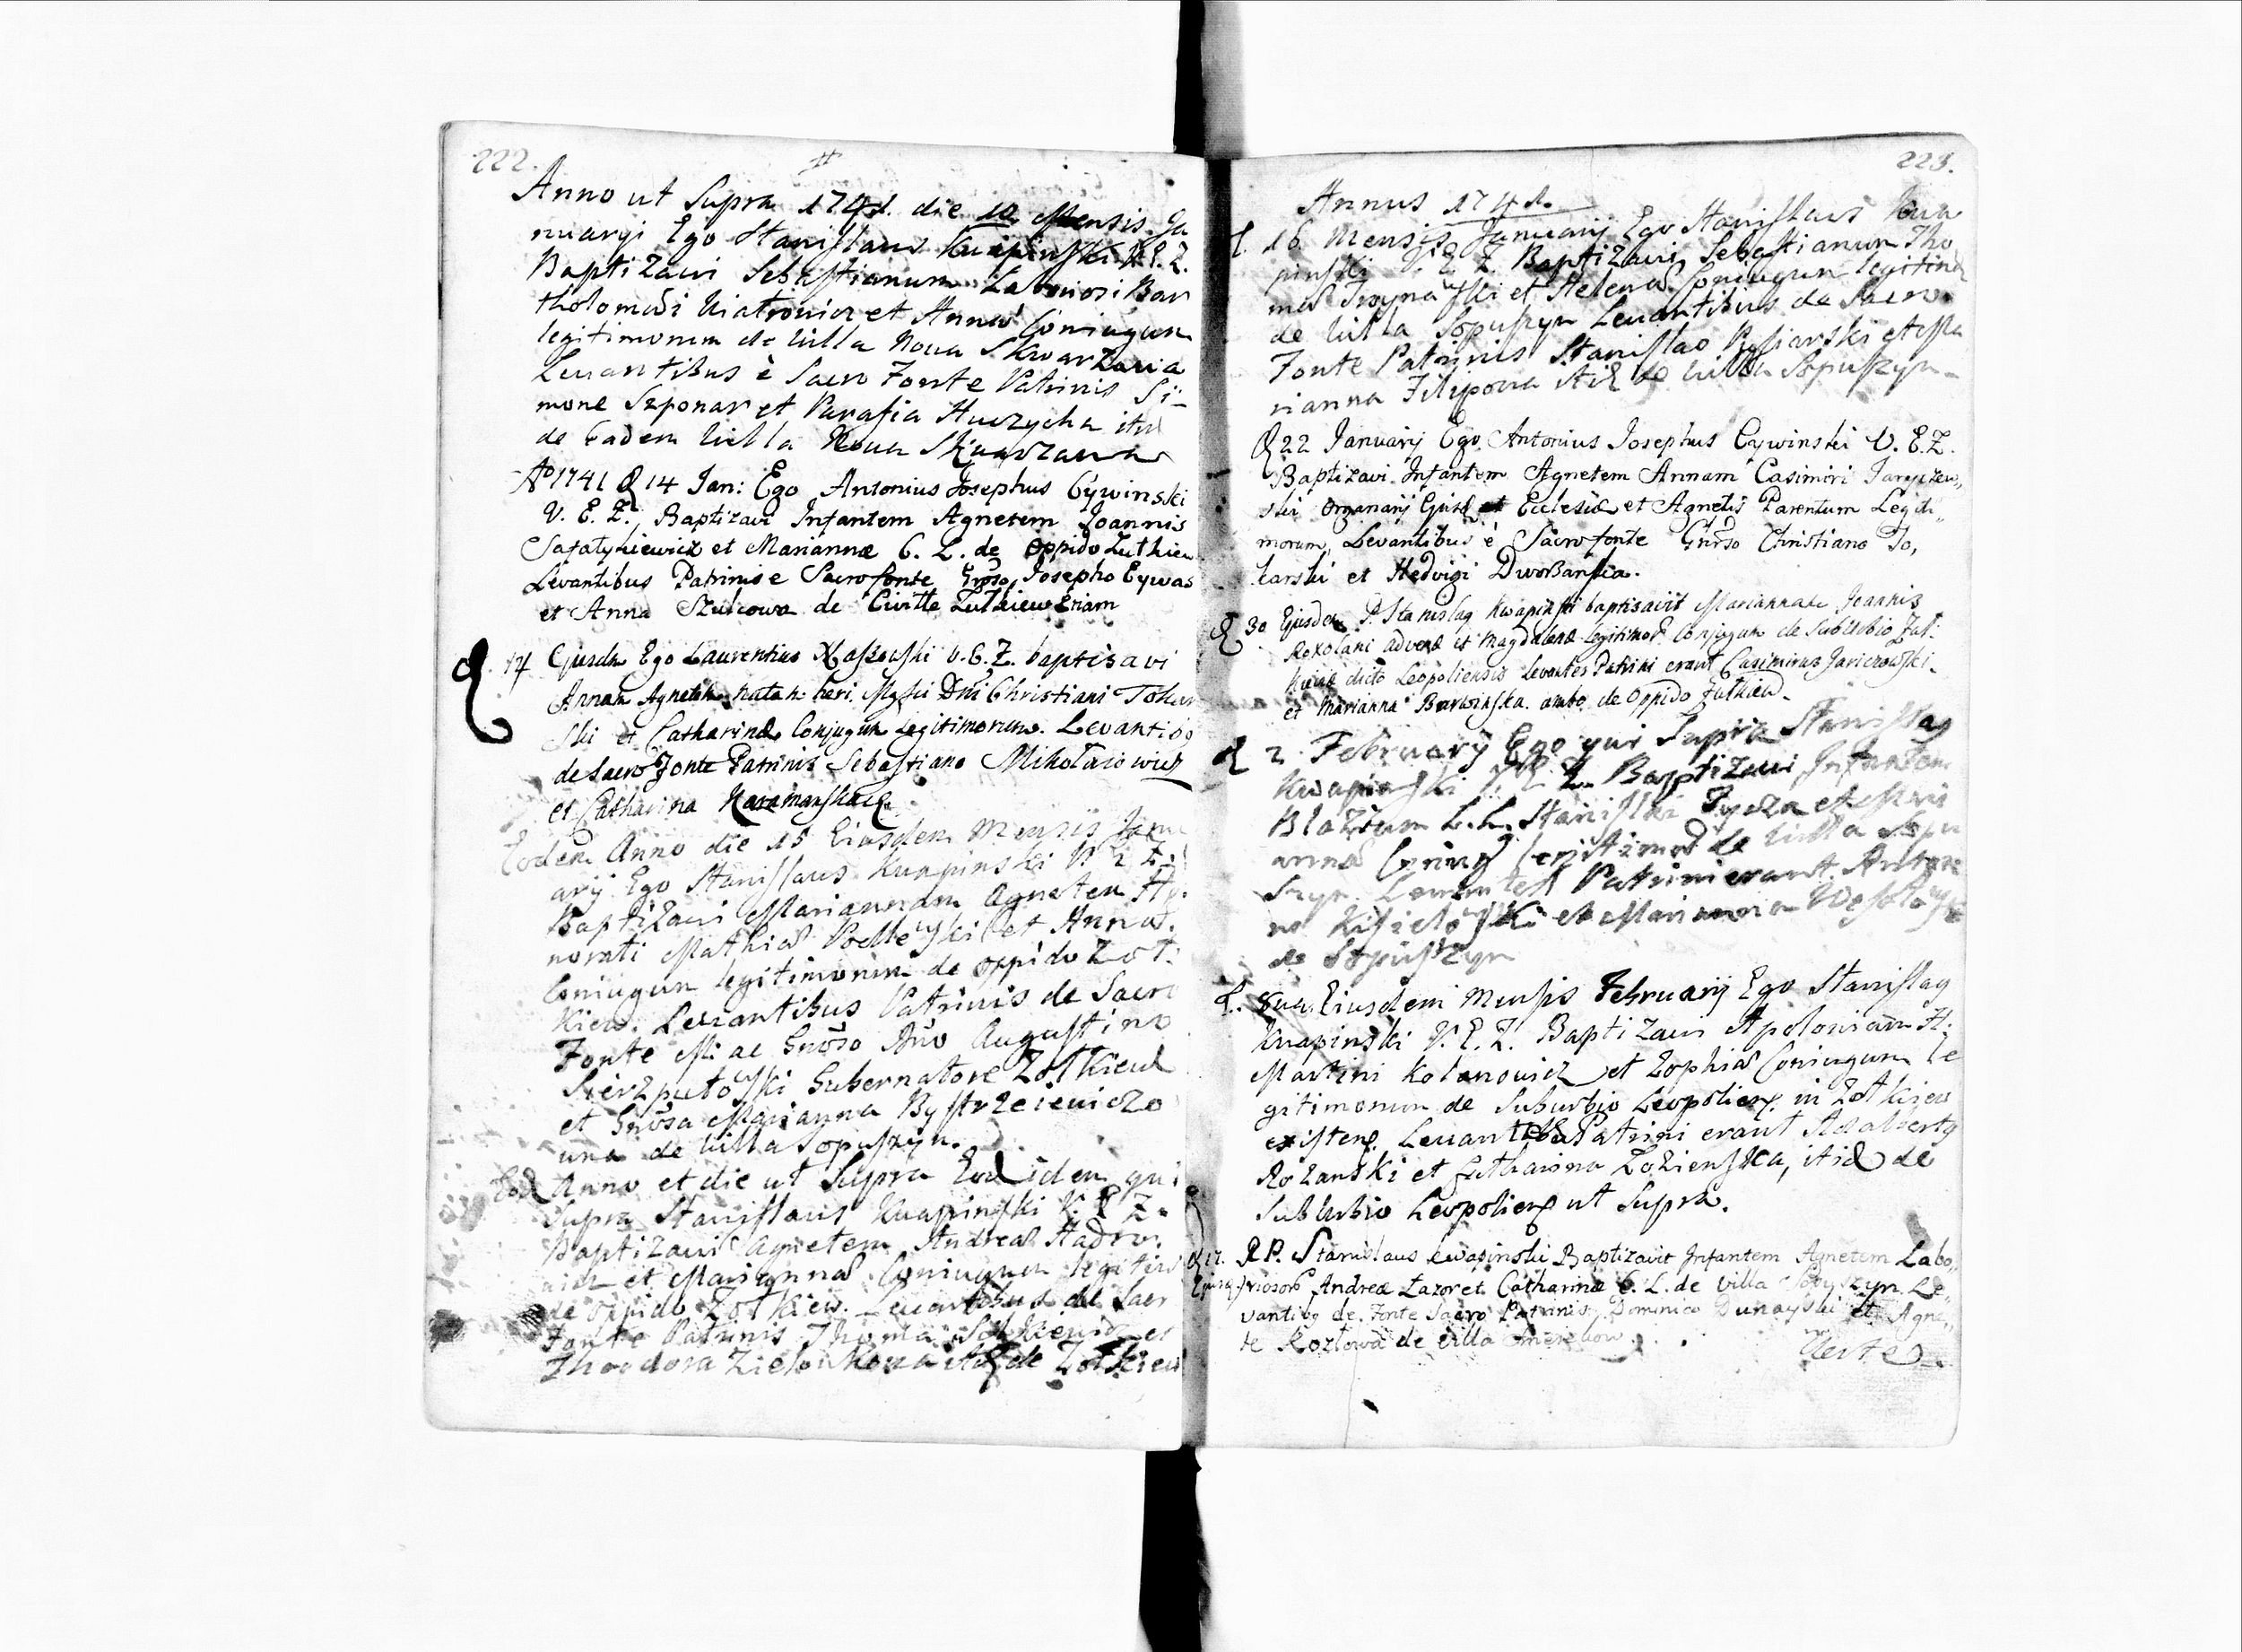 222.
Anno ut Supra 1741. die 10 Mensis Ja
nuaryi Ego Stanislaus Kwapinski V. E. Z.
Baptizavi Sebastianum Laboriosi Bar
tholomæi et Annæ Coniugum
legitimorum de Villa Nova Skwarzawa
Levantibus è Sacro Fonte Patrinis Si-
mone Szponar et Parafia Huczycha
de eadem Villa Nova Skwarzawa
Aō 1741 d 14 Jan: Ego Antonius Josephus Cywinski
V. E. Z., Baptizavi Infantem Agnetem Joannis
et Mariannæ C. L. de Oppido Zulkiew
Levantibus Patrinis e Sacro fonte Gnōso, Josepho Eywas
et Anna Szulcowa de Zulkiew Etiam
d. 14 Ejusdē Ego Laurentius V. E. Z. baptisavi
Annam Agnetem natam heri. Dni Christiani Tokar
ski et Catharinæ Conjugum Legitimorum. Levantibȝ
de Sacro Fonte Patrinis Sebastiano Mikołaiowicz
et Catharina
Eodem Anno die 15 Eiusdem Mensis Janu
arij Ego Stanislaus Kwapinski V. E. Z.
Baptizavi Mariannam Agnetem Ho-
norati Mathiæ et Annæ.
Coniugum legitimorum de oppido Zoł-
kiew. Levantibus Patrinis de Sacro
Fonte ac Gnōso Dn̄o Augustino
Sierzputoski Gubernatore Zołkiew
et Gnōsa Marianna Bystrzeiewiczo
wna de Villa Sopuszyn.
Eod Anno et die ut Supra Eod idem qui
Supra Stanislaus Kwapinski V. E. Z.
Baptizavi Agnetem Andreæ
et Mariannæ Coniugum legitim
de oppido Zołkiew. Levantibus de Sacr
Fonte Patrinis Thoma et
Theodora de Zołkiew
223.
Annus 1741.
d. 16 Mensis Januarij Ego Stanislaus Kwa
pinski V. E. Z. Baptizavi Sebastianum Tho
mæ et Helenæ Coniugum legitim
de Villa Sopuszyn Levantibus de Sacro
Fonte Patrinis Stanislao et Ma
rianna Filipowa de Villa Sopuszyn
d 22 Januarij Ego Antonius Josephus Cywinski V. E. Z.
Baptizavi Infantem Agnetem Annam Casimiri Jaryczew„
ski Organarij Ecclesiæ et Agnetis Parentum Legiti„
morum, Levantibus è Sacro fonte Gnr̄so Christiano To,
karski et Hedvigi Dworzanska.
d 30 Ejusdem P. Stanislaȝ Kwapinski baptisavit Mariannam Joannis
Roxolani advenæ et Magdalenæ legitimor̄ Conjugum de Suburbio Zul:
kieviæ dicto Leopoliensis levantes Patrini erant Casimirus Jariczowski
et Marianna ambo de Oppido Zulkiew.
d 2 February Ego qui Supra Stanislaȝ
Kwapinski V. E. Z. Baptizavi Infantem
Blazium L. L. Stanislai et Mari
annæ de Villa Sopu
szyn. Levantes Patrini erant Anto
ni et Marianna
de Sopuszyn
d. 8va Eiusdem Mensis February Ego Stanislaȝ
Kwapinski V. E. Z. Baptizavi Apoloniam H.
Martini Kolanowicz et Zophiæ Coniugum le
gitimorum de Suburbio Leopolien. in Zołkiew
existen. Levantes Patrini erant Adalbertȝ
Rożanski et Catharina Łozienska, de
Suburbio Leopolien ut Supra.
d 12. R. P. Stanislaus Kwapinski Baptizavit Infantem Agnetem Labo„
riosor̄ Andreæ Łazor et Catharinæ C. L. de Villa Sopuszyn. Le„
vantibȝ de Fonte Sacro Patrinis, Dominico Dunayski et Agne„
te Kozłowa de villa
Verte